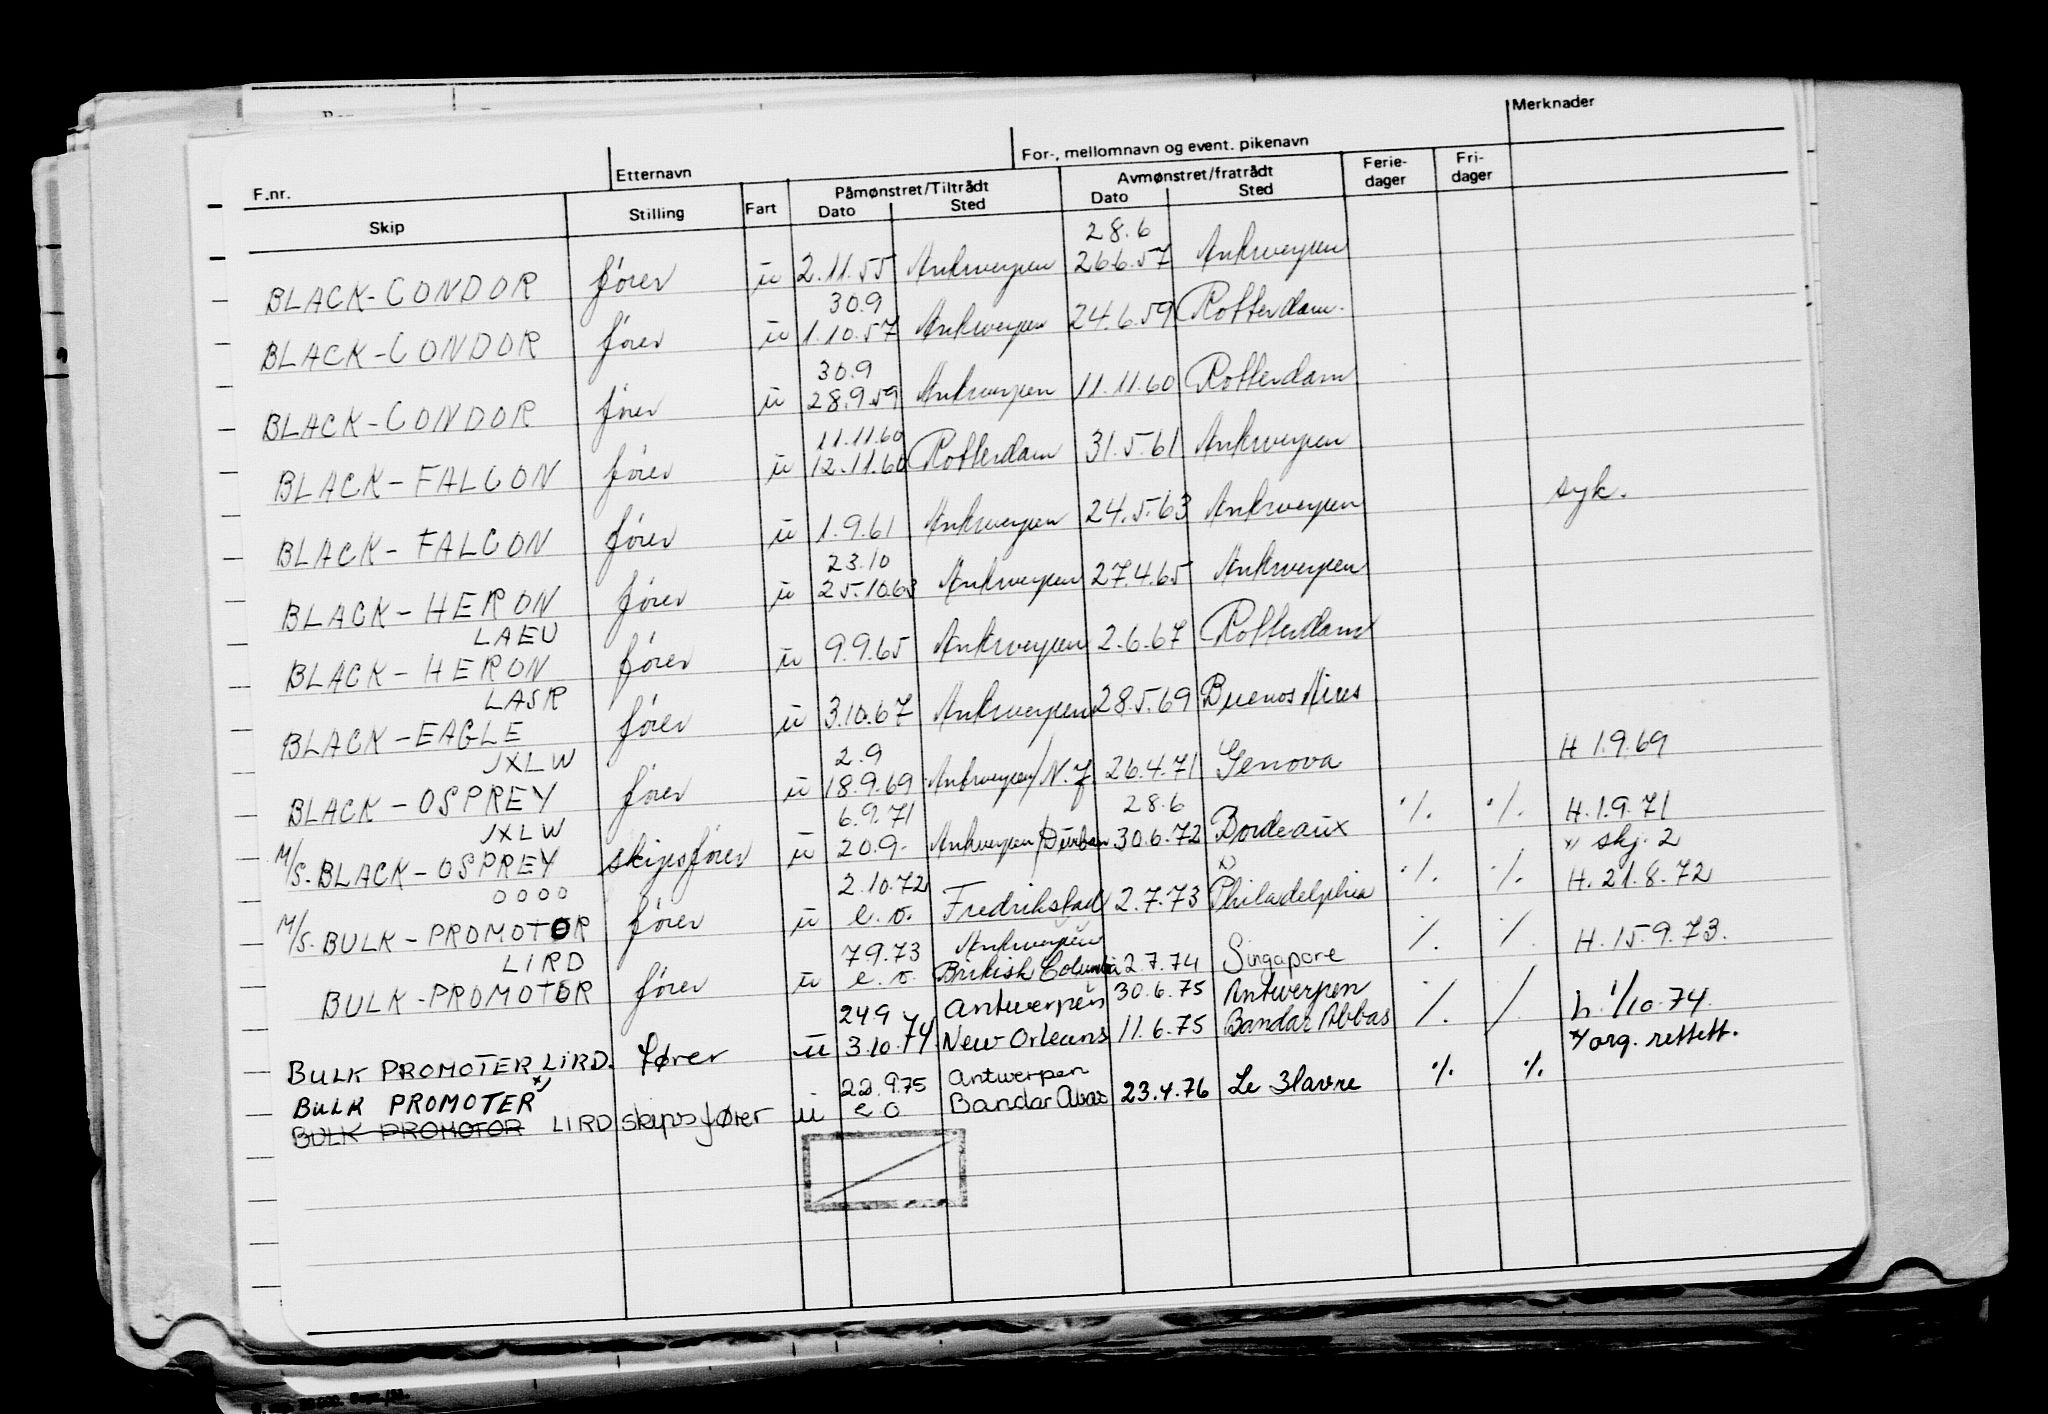 Merknader
F.nr. Etternavn For-, mellomnavn og event. pikenavn
Skip Stilling Fart Påmønstret/Tiltrådt Dato Sted Avmønstret/fratrådt Dato Sted Ferie-dager Fri-dager
28.6
BLACK-CONDOR fører u 2.11.55 Antwerpen 26.6.57 Antwerpen
30.9
BLACK-CONDOR fører u 1.10.57 Antwerpen 24.6.59 Rotterdam.
30.9
BLACK-CONDOR fører u 28.9.59 Antwerpen 11.11.60 Rotterdam
11.11.60
BLACK-FALCON fører u 12.11.60 Rotterdam 31.5.61 Antwerpen
BLACK-FALCON fører u 1.9.61 Antwerpen 24.5.63 Antwerpen syk.
23.10
BLACK-HERON fører u 25.10.63 Antwerpen 27.4.65 Antwerpen
LAEU
BLACK-HERON fører u 9.9.65 Antwerpen 2.6.67 Rotterdam
LASR
BLACK-EAGLE fører u 3.10.67 Antwerpen 28.5.69 Buenos Aires
JXLW 2.9
BLACK-OSPREY fører u 18.9.69 Antwerpen/N.J. 26.4.71 Genova H 1.9.69
JXLW 6.9.71 28.6
M/S. BLACK-OSPREY skipsfører u 20.9. Antwerpen/Durban 30.6.72 Bordeaux ./. ./. H.1.9.71
oooo 2.10.72 x) x) skj. 2
M/S. BULK-PROMOTOR fører u e.o. Fredrikstad 2.7.73 Philadelphia ./. ./. H. 21.8.72
LIRD 7.9.73 Antwerpen
BULK-PROMOTOR fører u e.o. British Columbia 2.7.74 Singapore ./. ./. H.15.9.73.
24.9 Antwerpen 30.6.75 Antwerpen
BULK PROMOTER LIRD. fører u 3.10.74 New Orleans 11.6.75 Bandar Abbas ./. / h. 1/10.74.
x) 22.9.75 Antwerpen x) org. rettett.
BULK PROMOTER
BULK PROMOTOR LIRD skipsfører u e o Bandar Abas 23.4.76 Le Havre ./. ./.